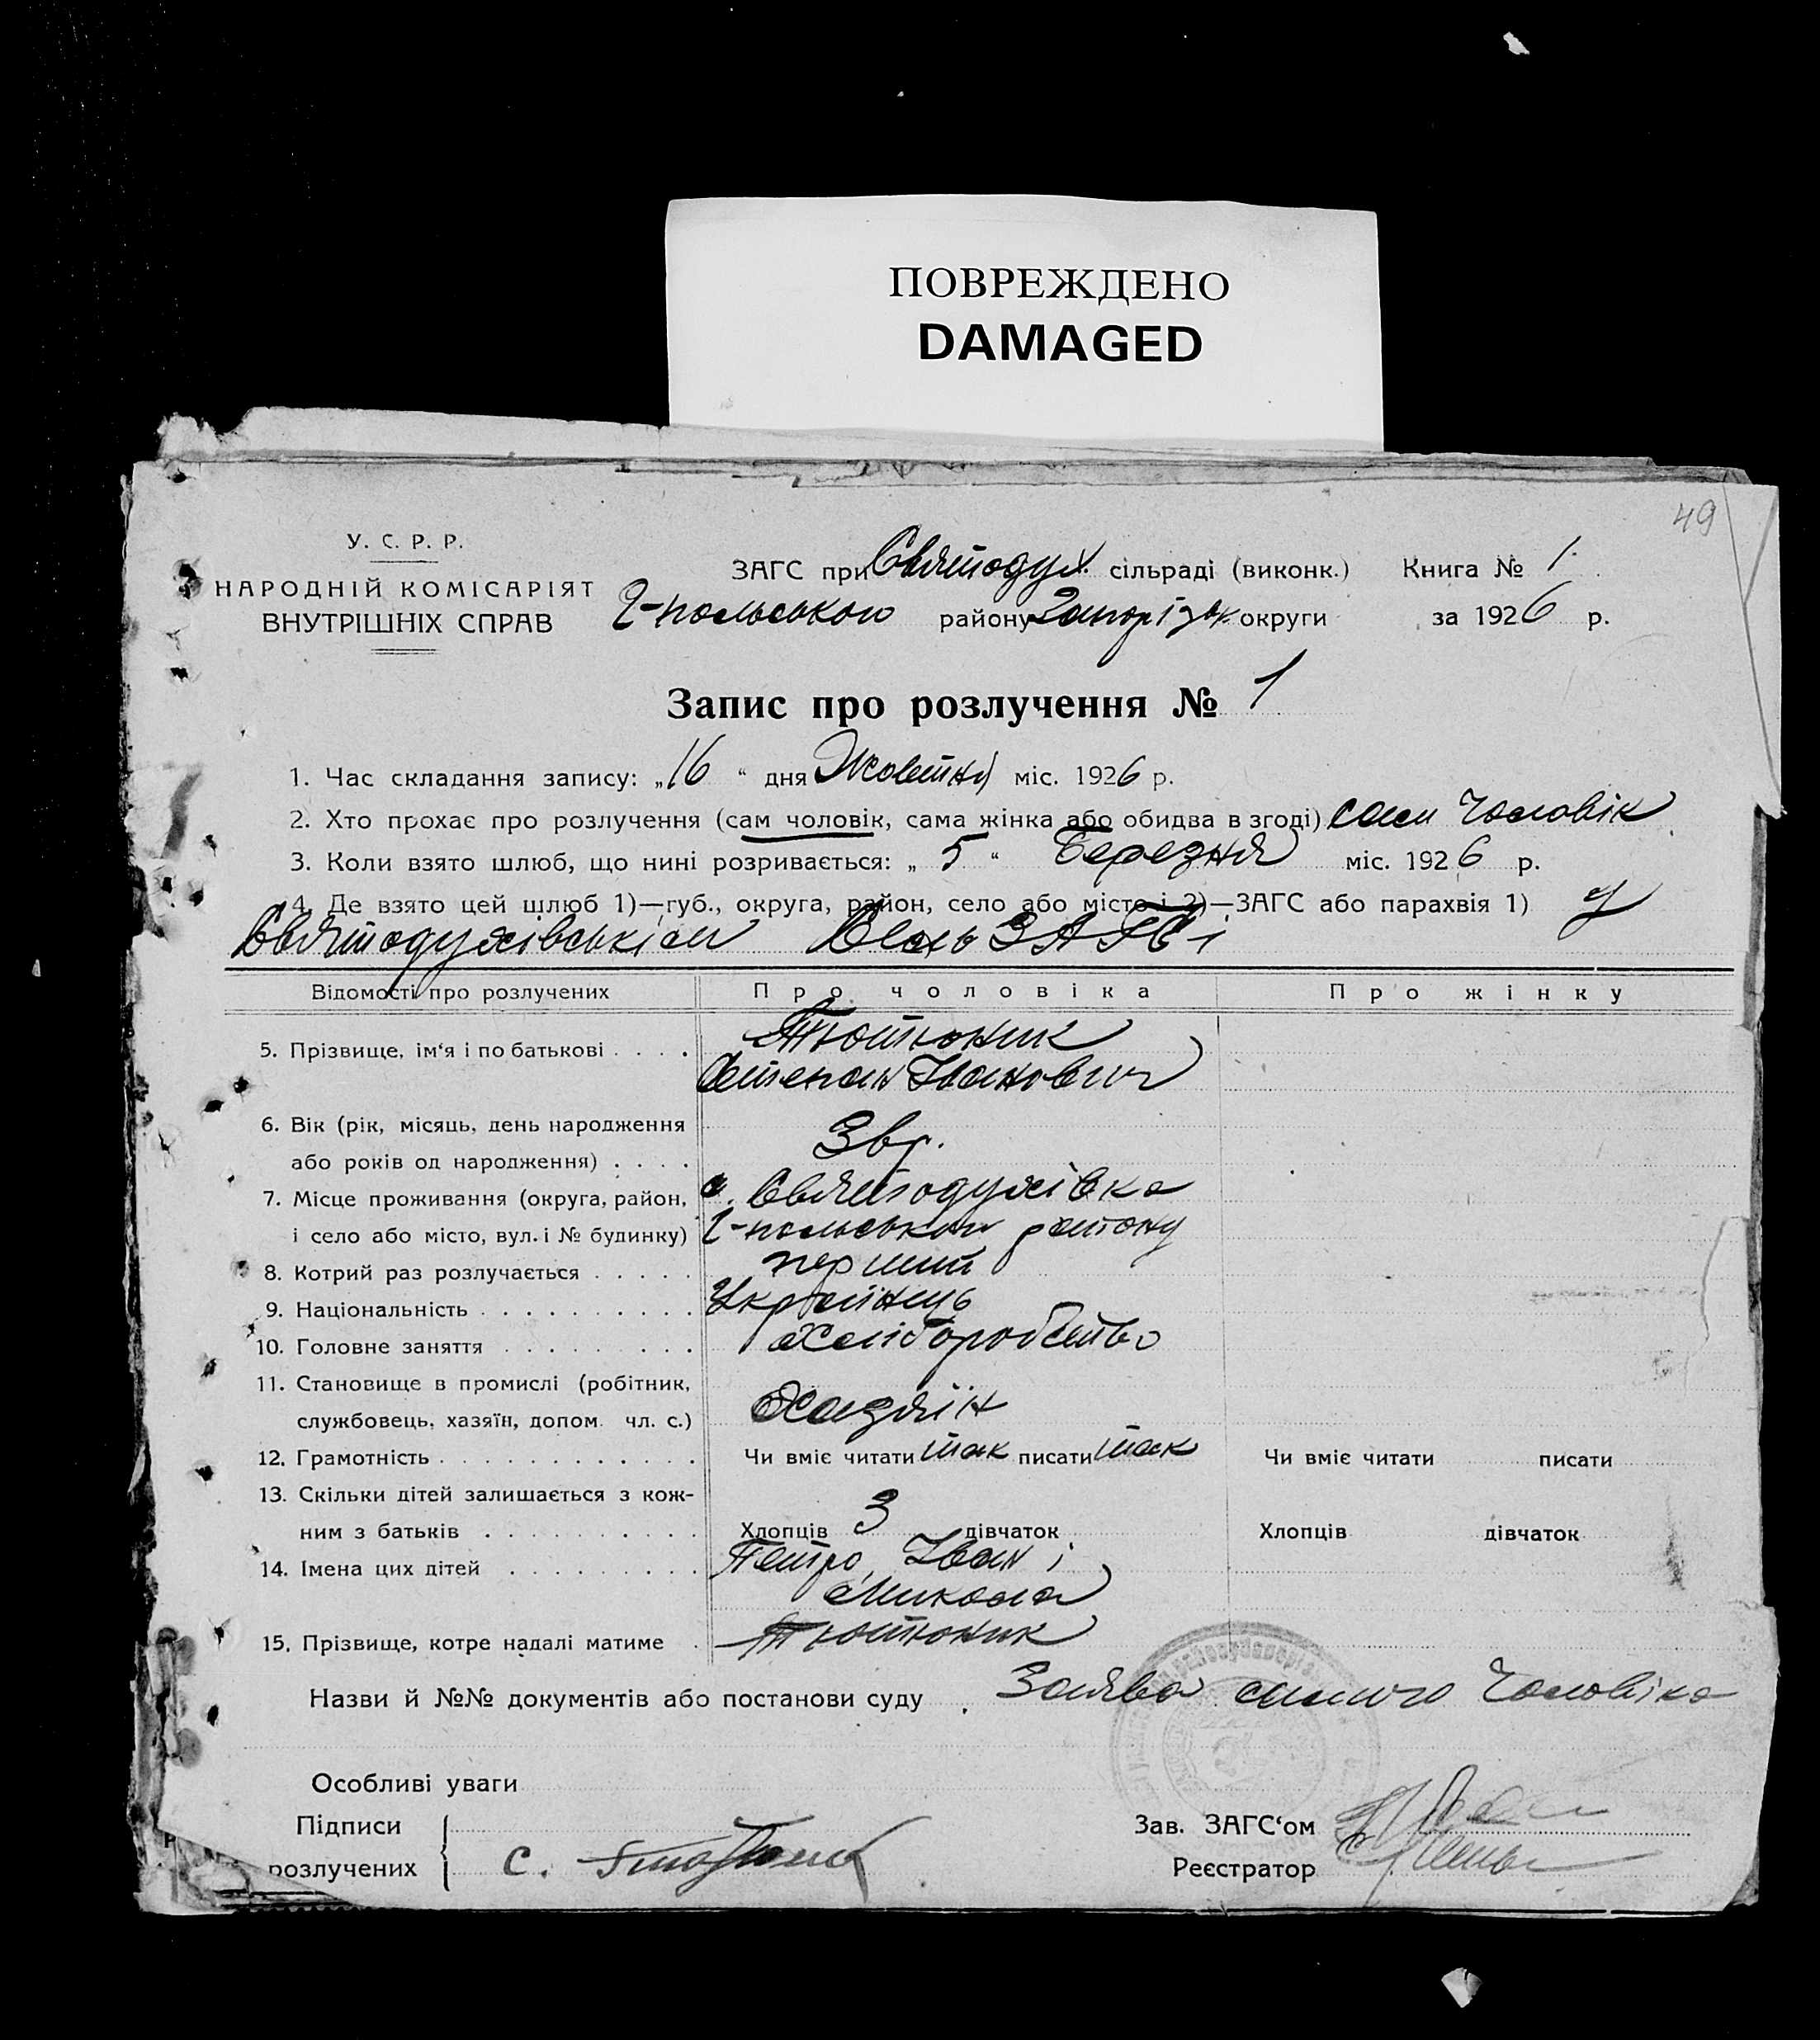 ПОВРЕЖДЕНО
DAMAGED
49
У. С. Р. Р.
НАРОДНІЙ КОМІСАРІЯТ
ВНУТРІШНІХ СПРАВ
ЗАГС при Святодух. сільраді (виконк.) Книга № 1.
Г-польського району Запорізьк. округи за 1926 р.
Запис про розлучення № 1
1. Час складання запису: „16“ дня Жовтня міс. 1926 р.
2. Хто прохає про розлучення (сам чоловік, сама жінка або обидва в згоді) сам Чоловік
3. Коли взято шлюб, що нині розривається: „5“ Березня міс. 1926 р.
4. Де взято цей шлюб 1)—губ., округа, район, село або місто і 2)—ЗАГС або парахвія 1) у
Святодухівськім СільЗАГСі
Відомості про розлучених Про чоловіка Про жінку
5. Прізвище, ім‘я і по батькові . . . . Тютюник
Степан Іванович
6. Вік (рік, місяць, день народження
або років од народження) . . . .
7. Місце проживання (округа, район, с. Святодухівка
і село або місто, вул. і № будинку) Г-польського району
8. Котрий раз розлучається . . . . . перший
9. Національність . . . . . . . . . . Українець
10. Головне заняття . . . . . . . . . Хліборобство
11. Становище в промислі (робітник,
службовець, хазяїн, допом. чл. с.) Хазяїн
12. Грамотність . . . . . . . . . . . . Чи вміє читати так писати так Чи вміє читати писати
13. Скільки дітей залишається з кож-
ним з батьків . . . . . . . . . . Хлопців 3 дівчаток Хлопців дівчаток
14. Імена цих дітей . . . . . . . . . Петро, Іван і
Микола
15. Прізвище, котре надалі матиме . Тютюник
Назви й №№ документів або постанови суду . Заява самого Чоловіка
Особливі уваги
Підписи Зав. ЗАГС‘ом
розлучених С. Реєстратор